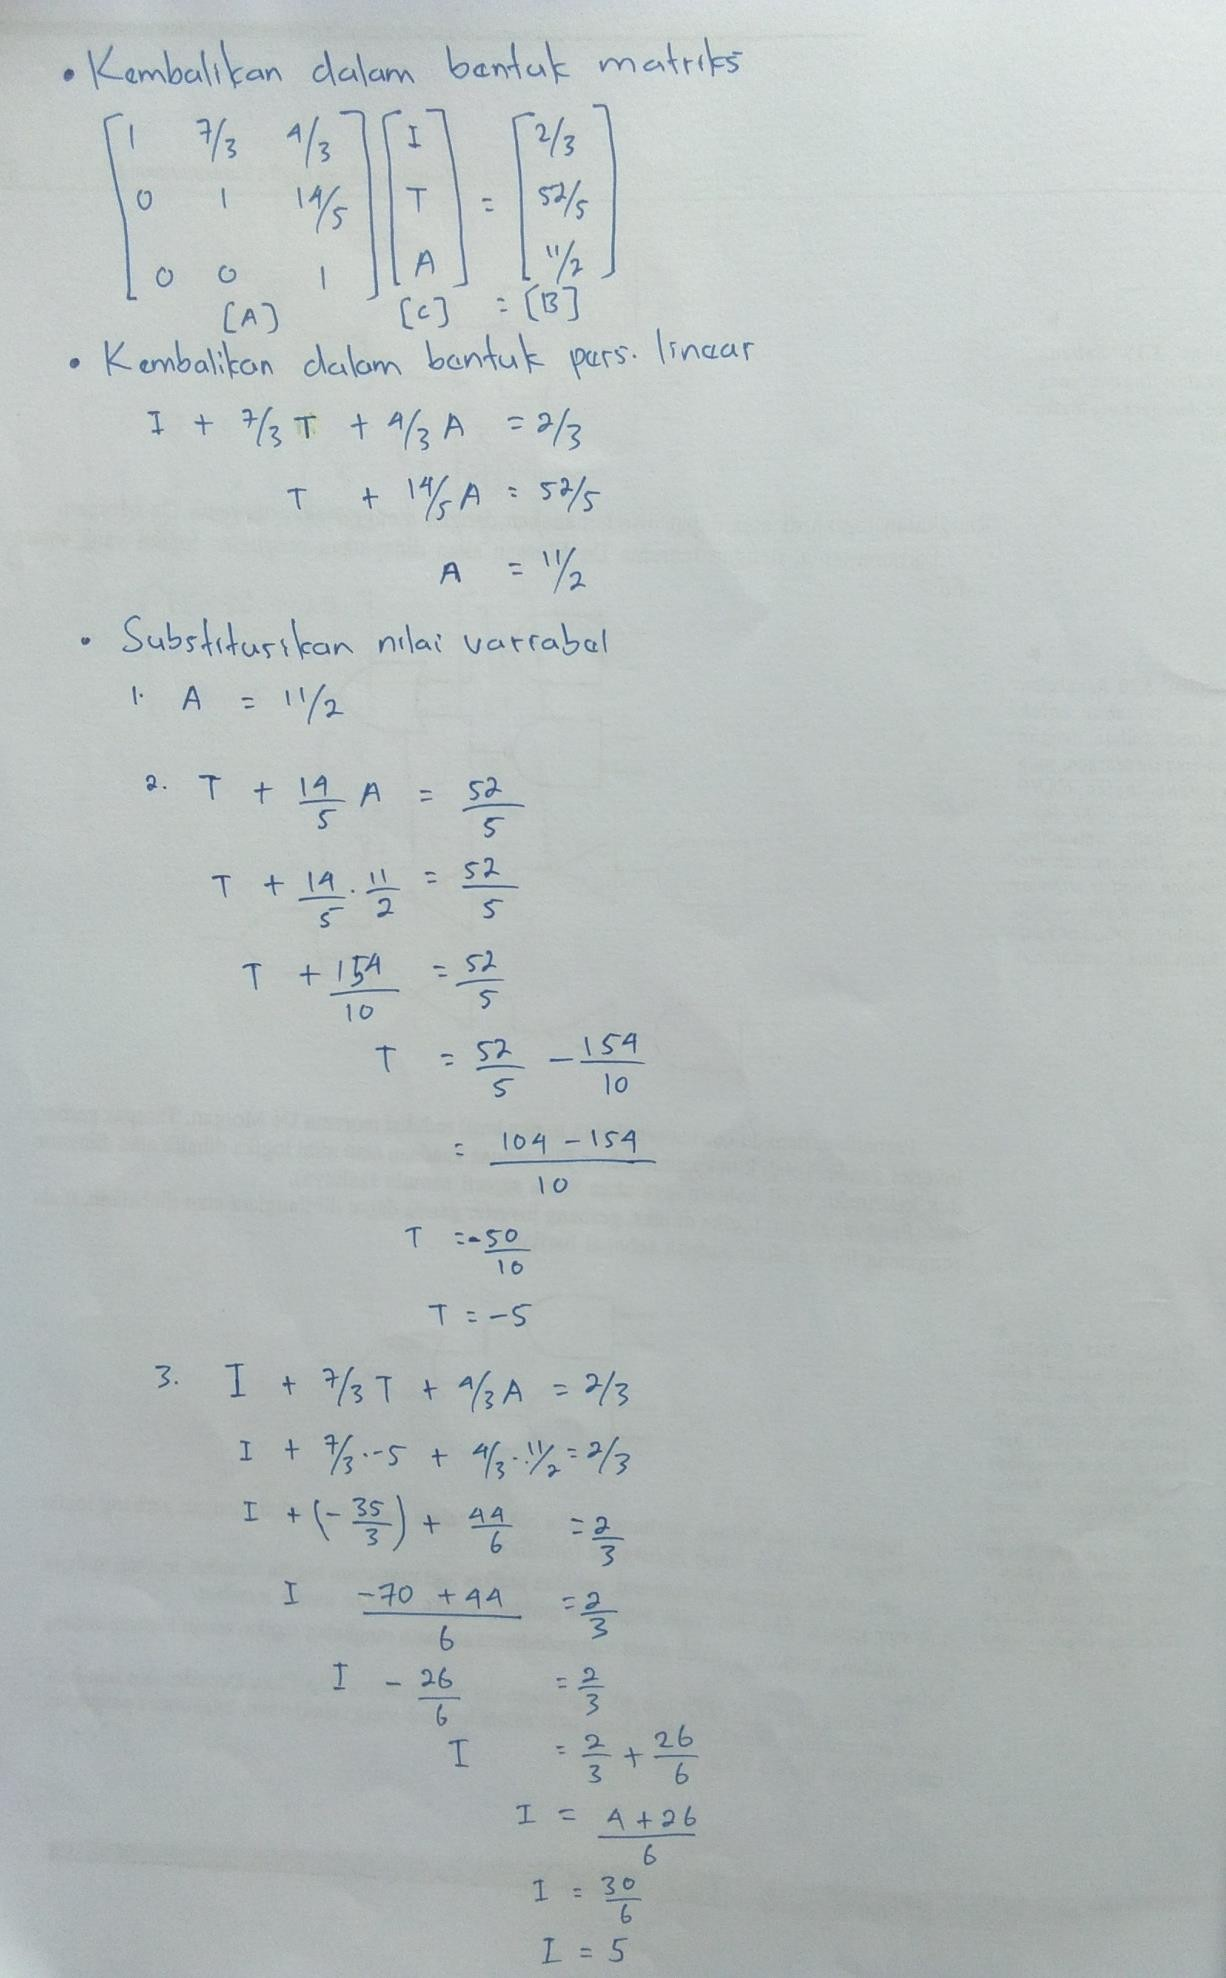 • Kembalikan dalam bentuk matriks
[1 7/3 4/3] [I] = [2/3]
[0 1 14/5] [T] = [52/5]
[0 0 1] [A] = [11/2]
[A] [C] = [B]
• Kembalikan dalam bentuk pers. linear
I + 7/3 T + 4/3 A = 2/3
T + 14/5 A = 52/5
A = 11/2
• Substitusikan nilai variabel
1. A = 11/2
2. T + 14/5 A = 52/5
T + 14/5 . 11/2 = 52/5
T + 154/10 = 52/5
T = 52/5 - 154/10
= 104 - 154 / 10
T = -50/10
T = -5
3. I + 7/3 T + 4/3 A = 2/3
I + 7/3 . -5 + 4/3 . 11/2 = 2/3
I + (-35/3) + 44/6 = 2/3
I -70 + 44 / 6 = 2/3
I - 26/6 = 2/3
I = 2/3 + 26/6
I = 4 + 26 / 6
I = 30/6
I = 5